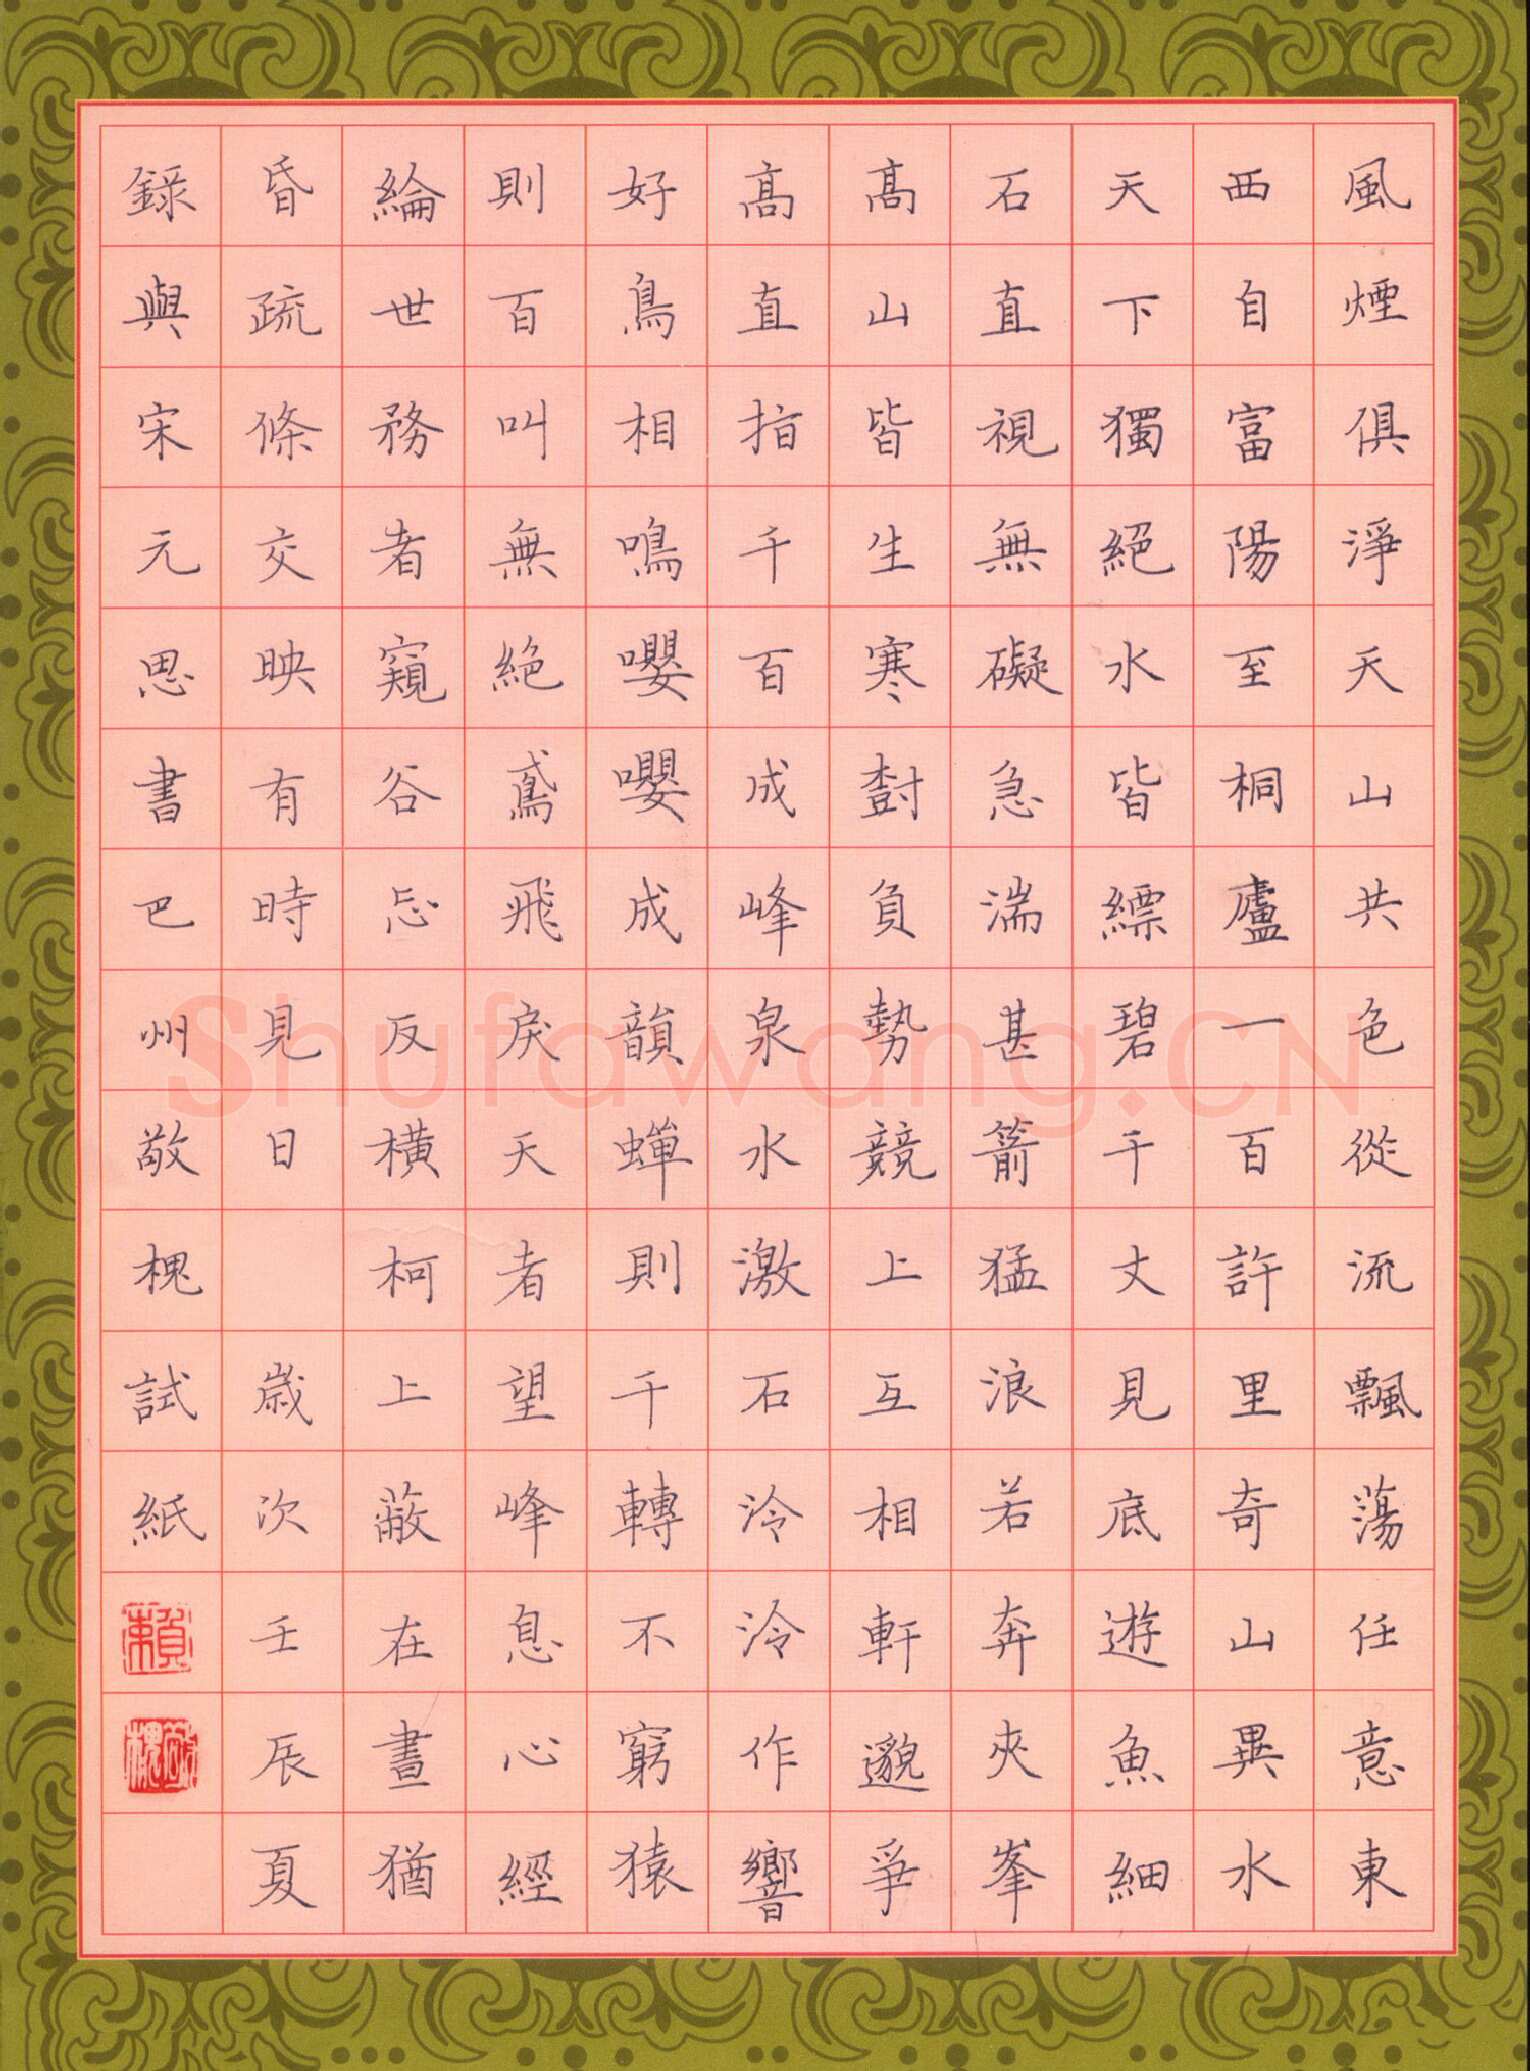 風煙俱淨天山共色從流飄蕩任意東
西自富陽至桐廬一百許里奇山異水
天下獨絕水皆縹碧千丈見底遊魚細
石直視無礙急湍甚箭猛浪若奔夾峯
高山皆生寒樹負勢競上互相軒邈爭
高直指千百成峰泉水激石泠泠作響
好鳥相鳴嚶嚶成韻蟬則千轉不窮猿
則百叫無絕鳶飛戾天者望峰息心經
綸世務者窺谷忘反橫柯上蔽在晝猶
昏疏條交映有時見日 歲次壬辰夏
錄與宋元思書巴州敬槐試紙
賴
敬槐
Shufawang.CN